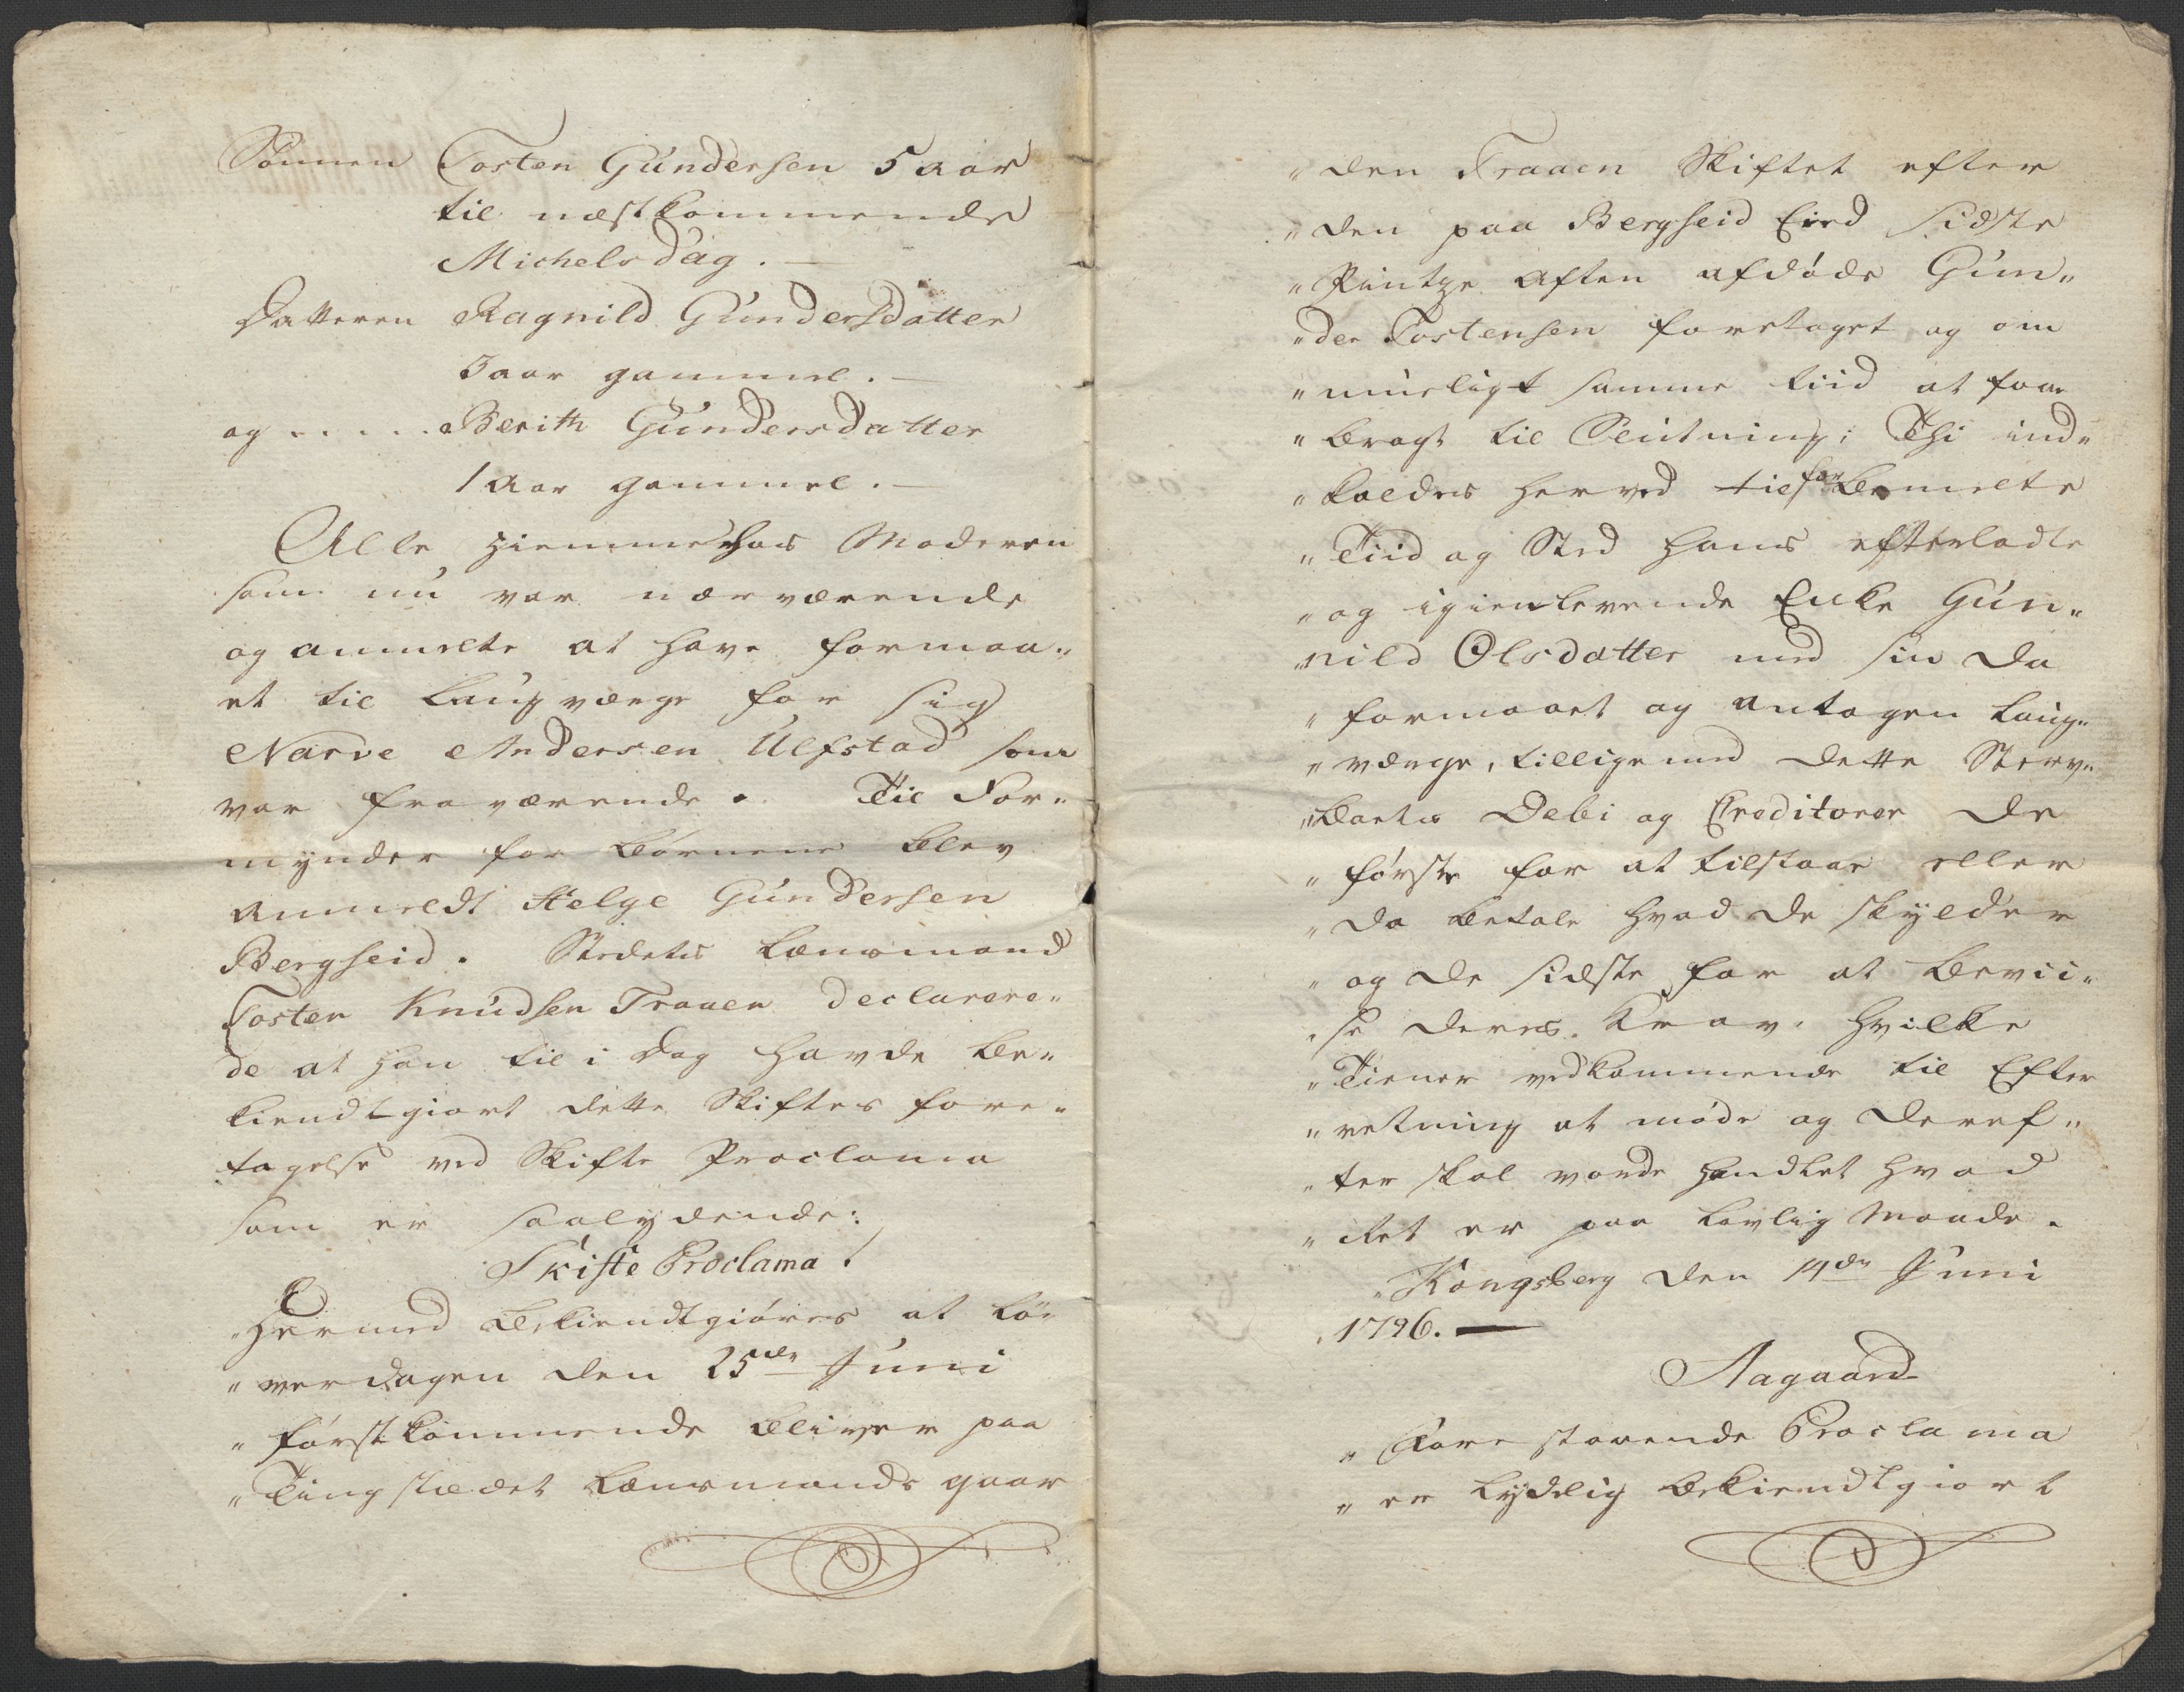 Sönnen Tosten Gundersen 5 aar
til næstkommende
Michelsdag. —
Datteren Ragnild Gundersdatter
3 aar gammel. —
og . . . . . Berith Gundersdatter
1 aar gammel. —
Alle Hiemme hos Moderen
som nu var nærværende
og anmelte at have formaa„
et til Laugværge for sig
Narve Andersen Ulfstad som
var fraværende. Til For„
mynder for Börnene blev
anmeldt Helge Gundersen
Bergseid. Stedets Lænsmand
Tosten Knudsen Traaen declarere„
de at han til i Dag havde be„
kiendtgiort dette Skiftes fore„
tagelse ved Skifte Proclama
som er saalydende:
Skifte Proclama!
„Hermed bekiendtgiöres at Lö„
„verdagen den 25de Juni
„förstkommende bliver paa
„Tingstædet Lænsmands gaar
„den Traaen Skiftet efter
„den paa Bergseid Eied sidste
„Pintze Aften afdöde Gun„
„der Tostensen foretaget og om
„mueligt samme tiid at faae
„bragt til Slutning; Thi ind„
„kaldes herved til forbemelte
„Tiid og Sted hans efterladte
„og igienlevende Enke Gun„
„nild Olsdatter med sin da
„formaaet og antagen Laug„
„værge, tilligemed dette Sterv„
„boets Debi og Creditorer de
„förste for at tilstaae eller
„da betale hvad de skylder
„og de sidste for at bevii„
„se deres Krav. hvilke
„Tiener vedkommende til Efter
„retning at möde og deref„
„ter skal vorde handlet hvad
„Ret er paa Lovlig Maade.
„Kongsberg den 14de Juni
„1796. —
Aagaard
„Forestaaende Proclama
„er lydelig bekiendtgiort